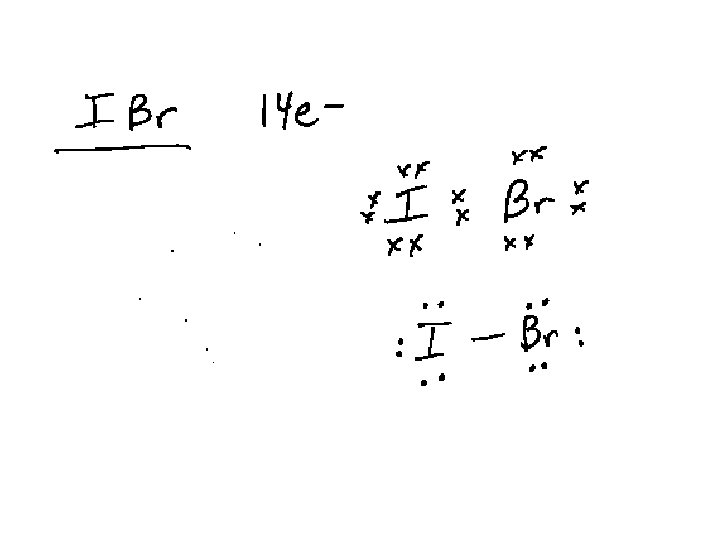 I Br 14e-
xx xx
xx I xx Br xx
xx xx
·· ··
: I — Br :
·· ··